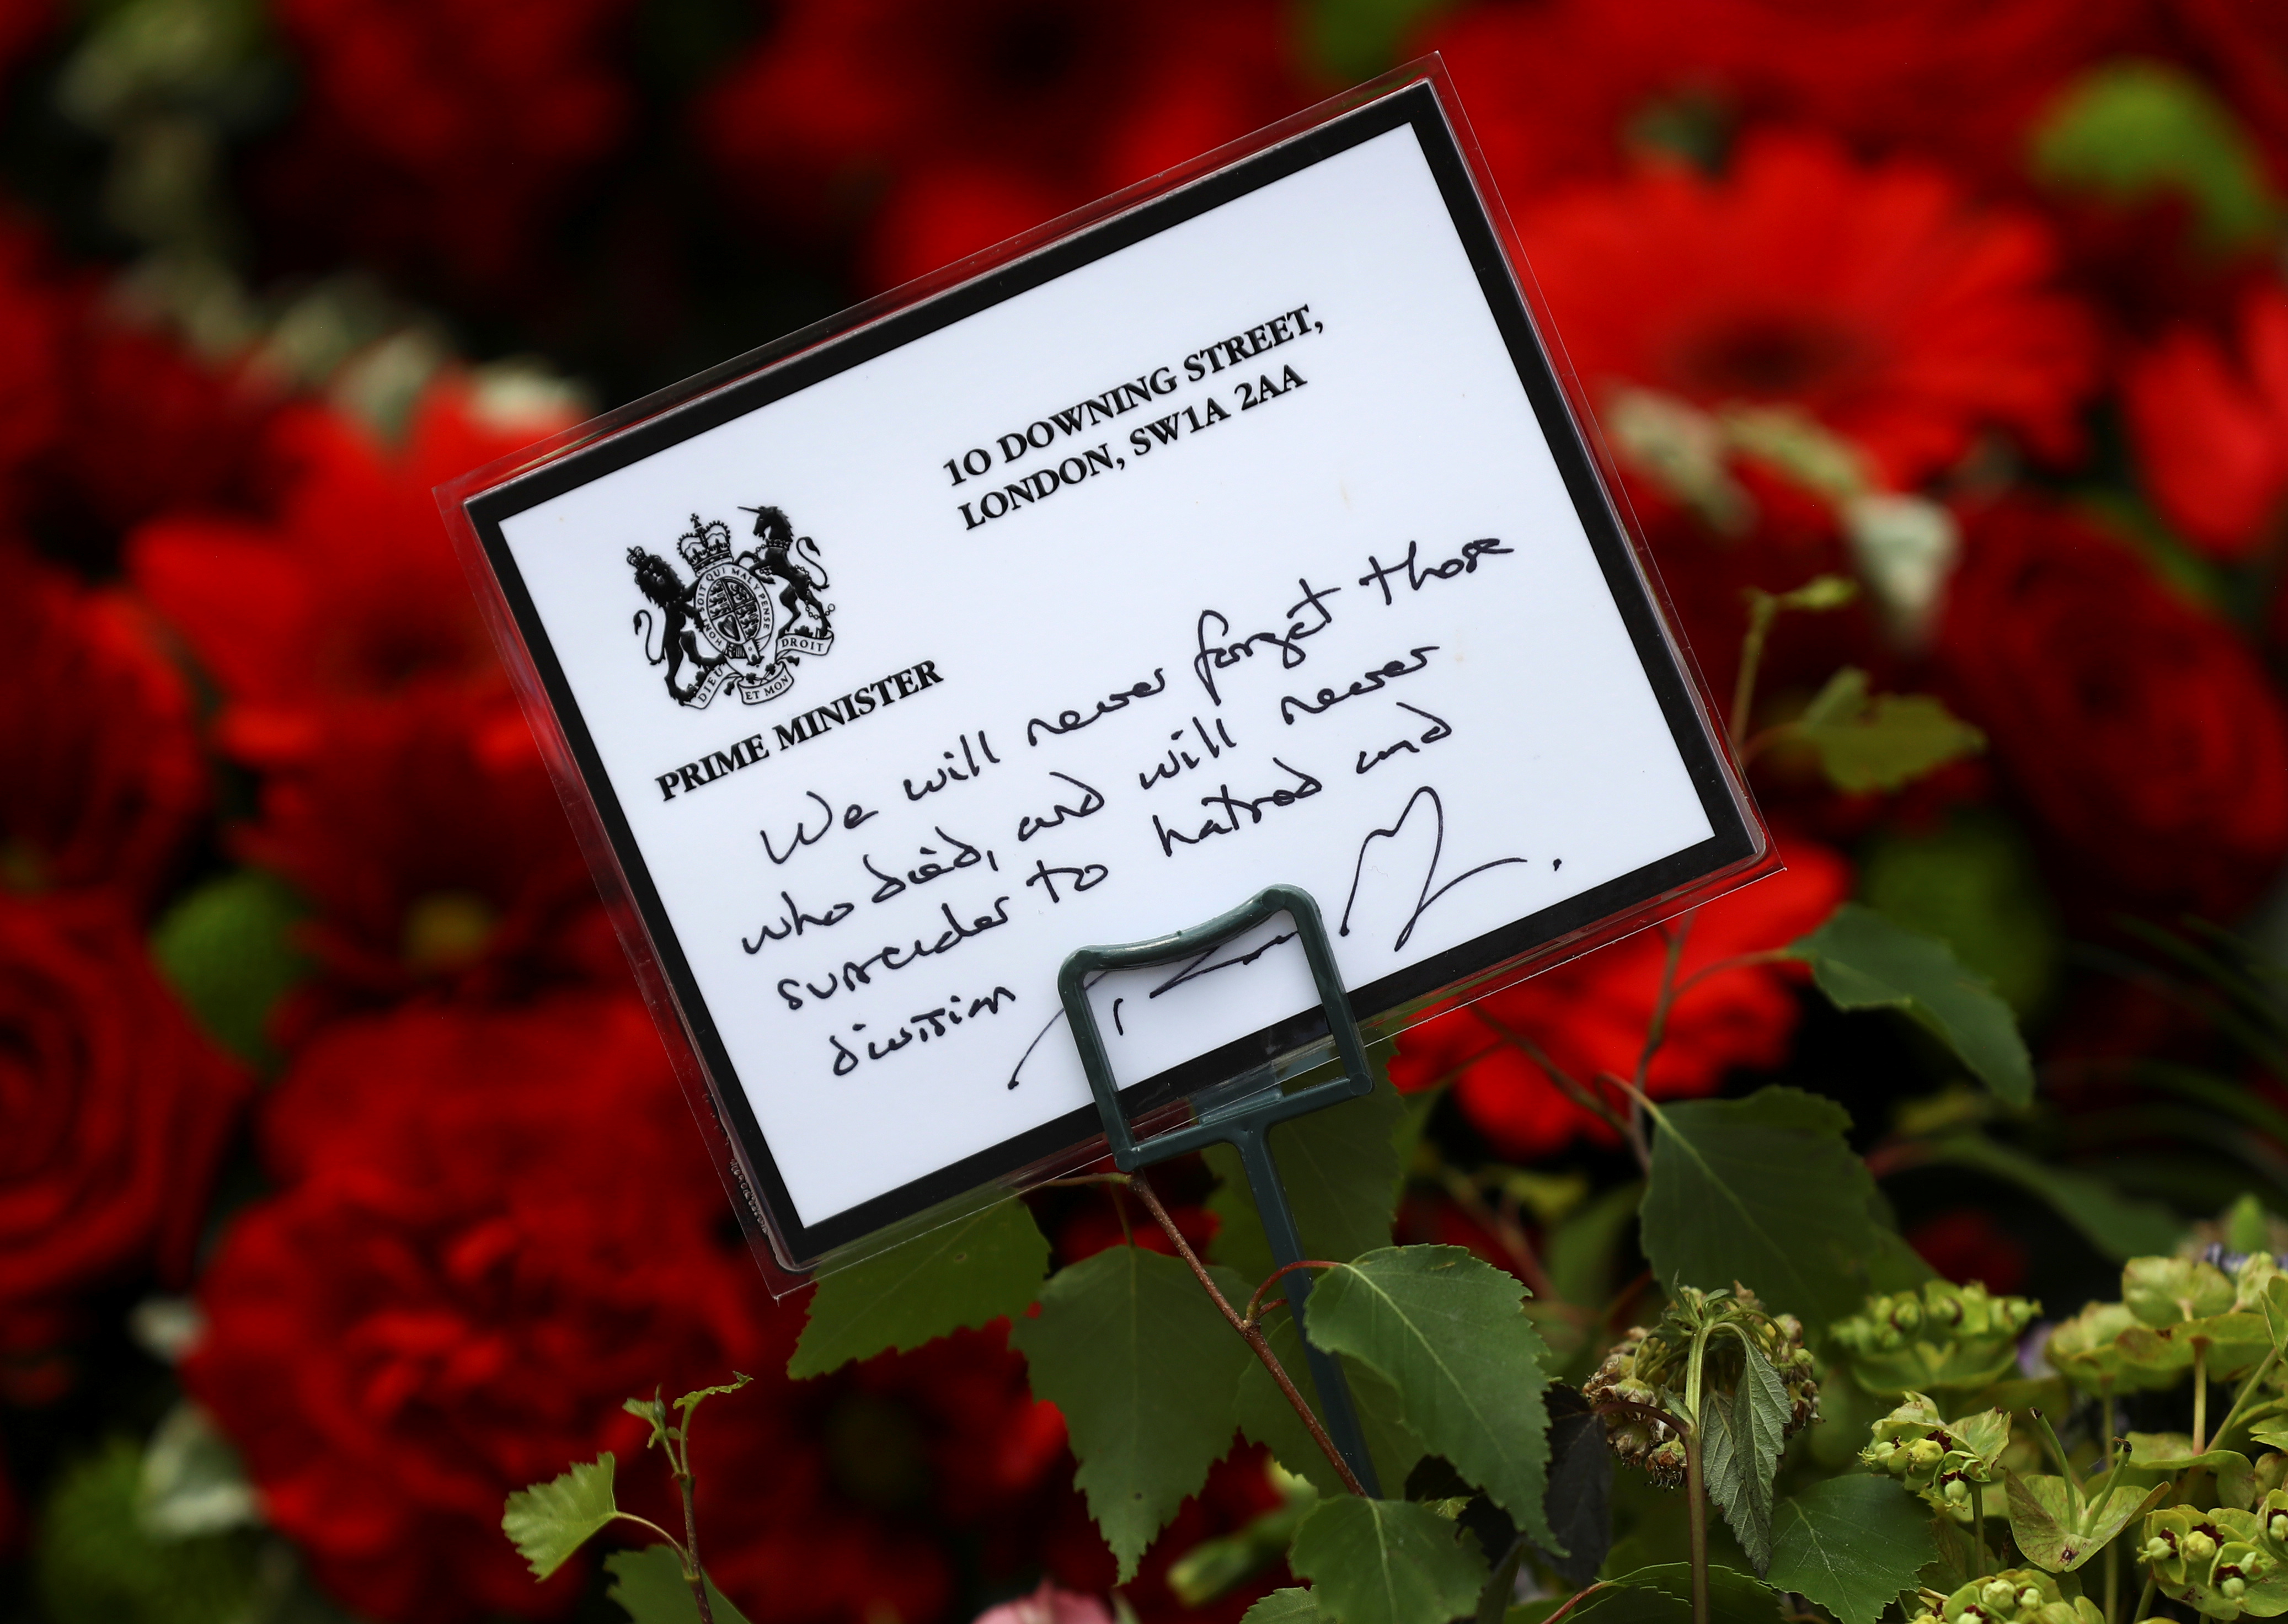 10 DOWNING STREET,
LONDON, SW1A 2AA
HONI SOIT QUI MAL Y PENSE
DIEU ET MON DROIT
PRIME MINISTER
We will never forget those
who died, and will never
surrender to hatred and
division